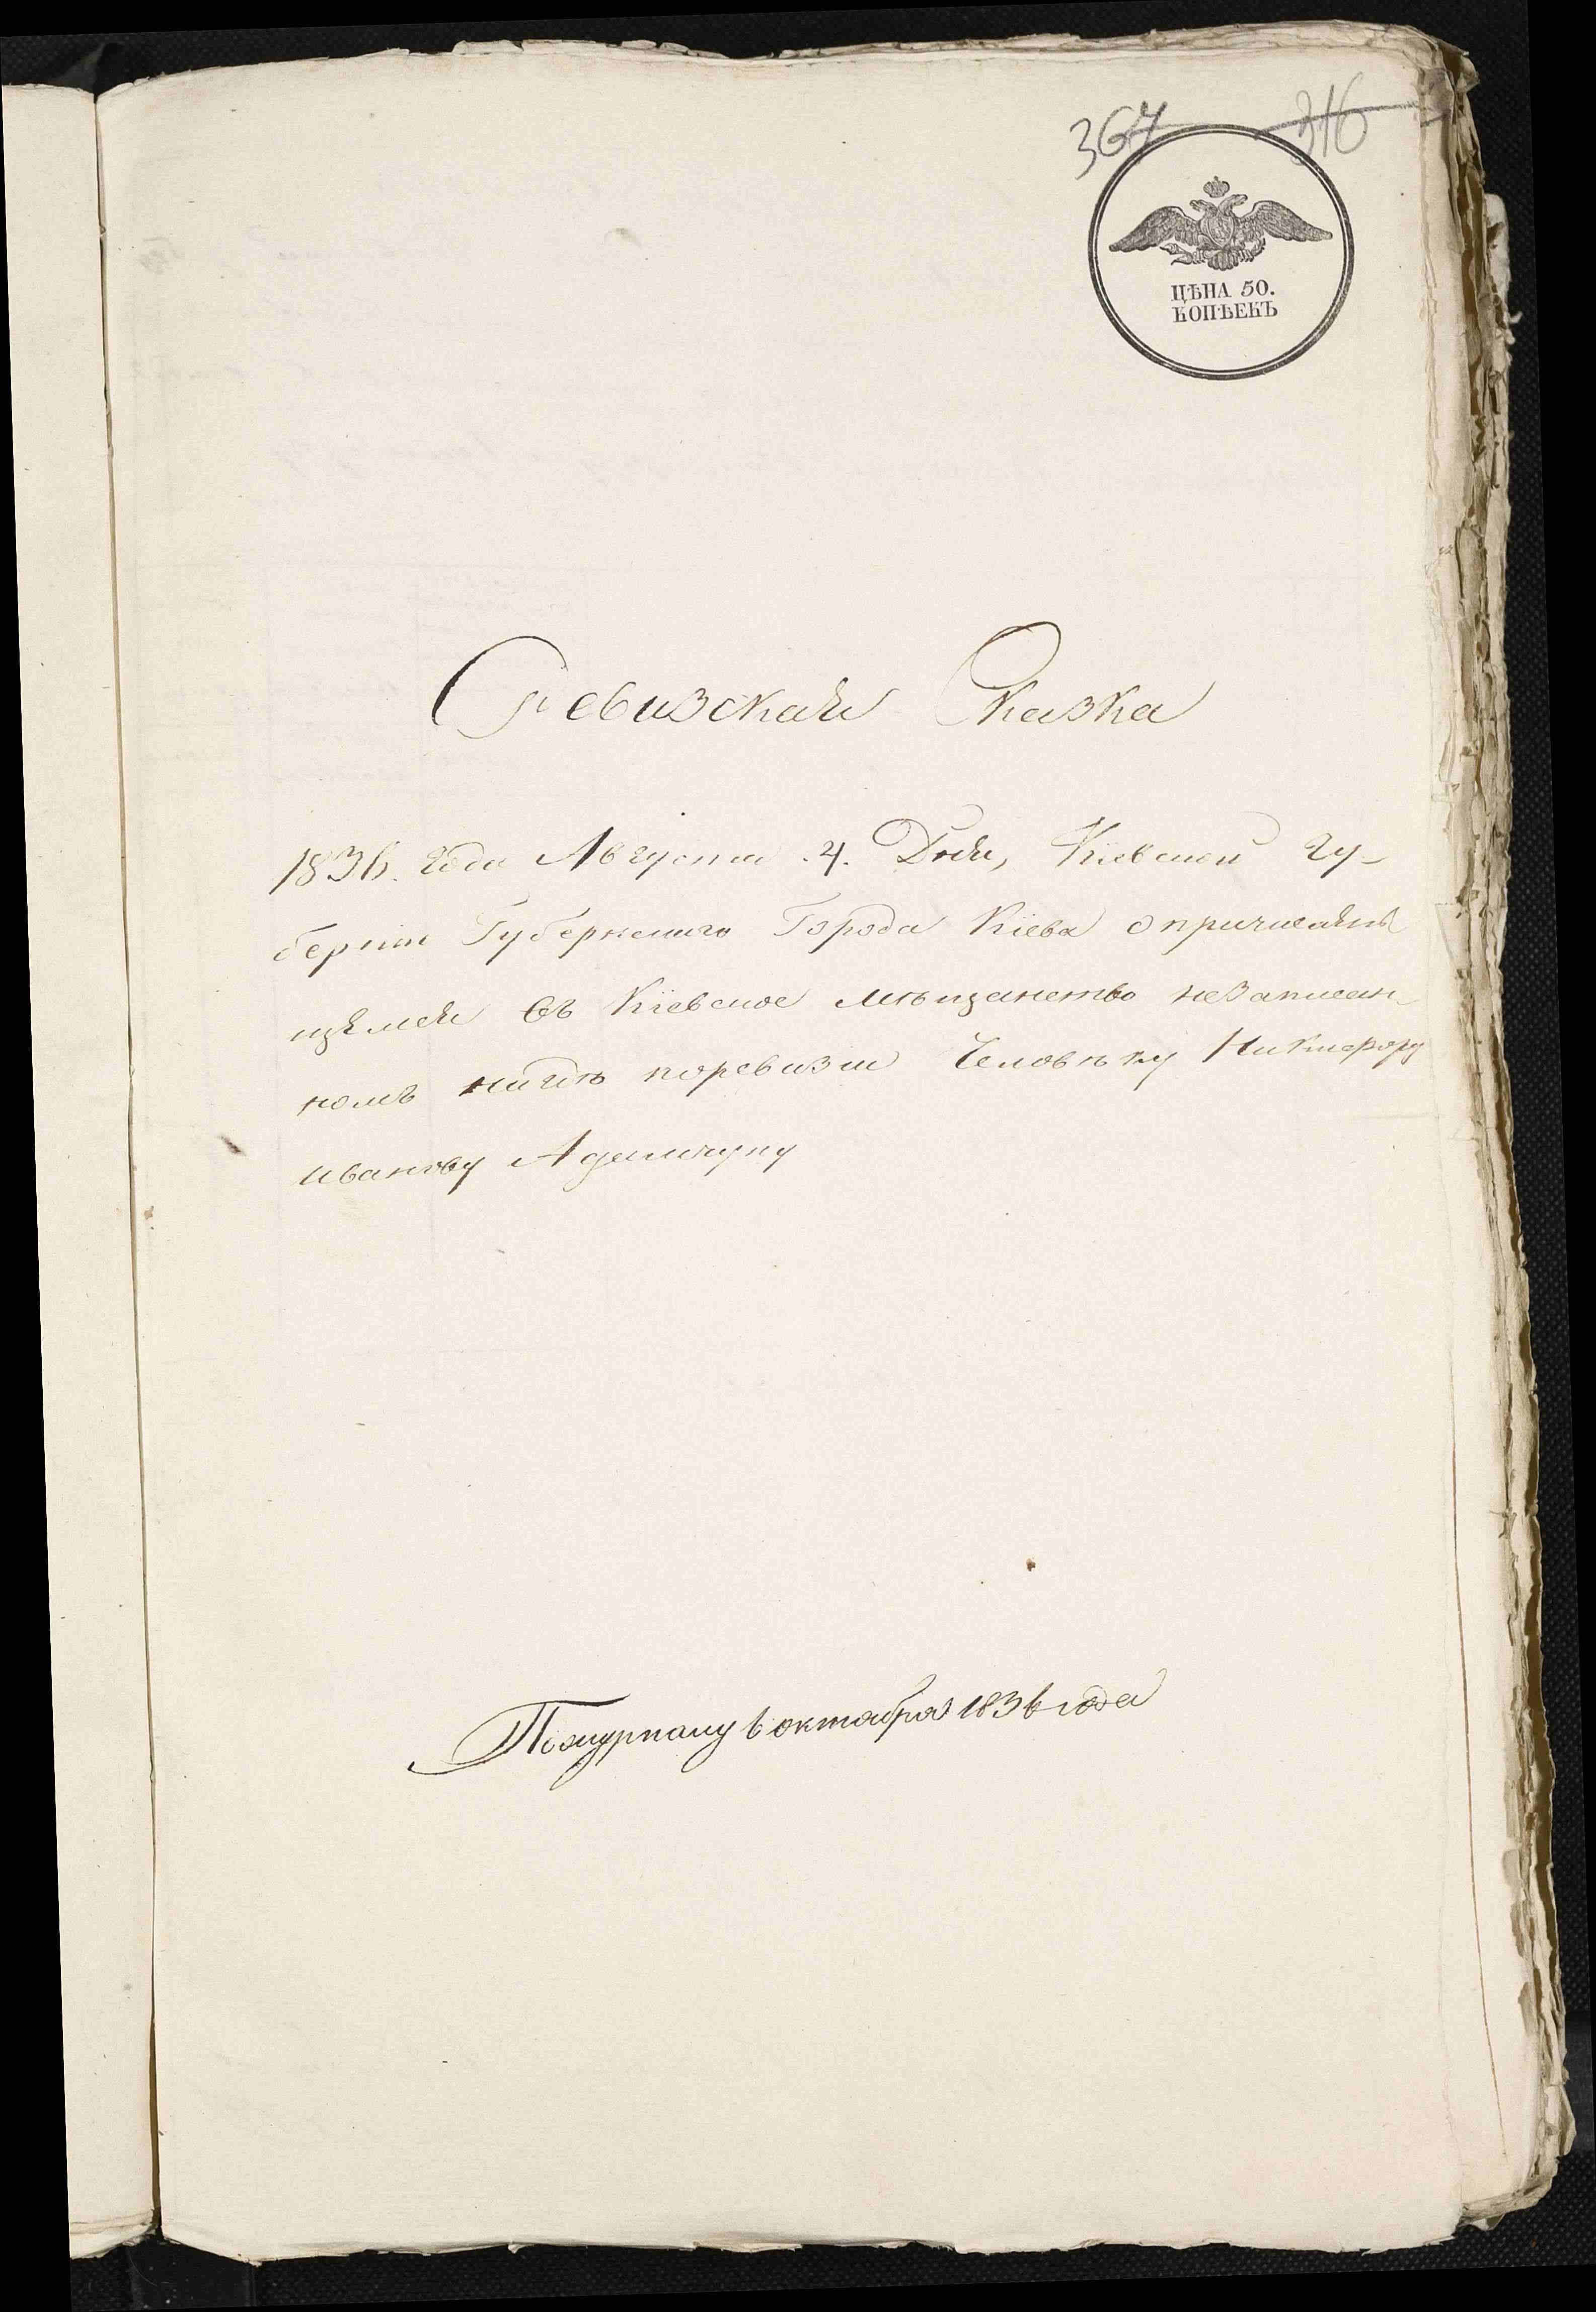 367 316
ЦѢНА 50.
КОПѢЕКЪ
Ревизская Сказка
1836. года Августа .4. Дня, Кіевской Гу-
берніи Губернскаго Города Кіева опричисляю
щемся въ Кіевское мѣщанство незаписан-
номъ нигдѣ поревизіи Человѣку Никифору
Иванову
По журналу 6 октября 1836 года